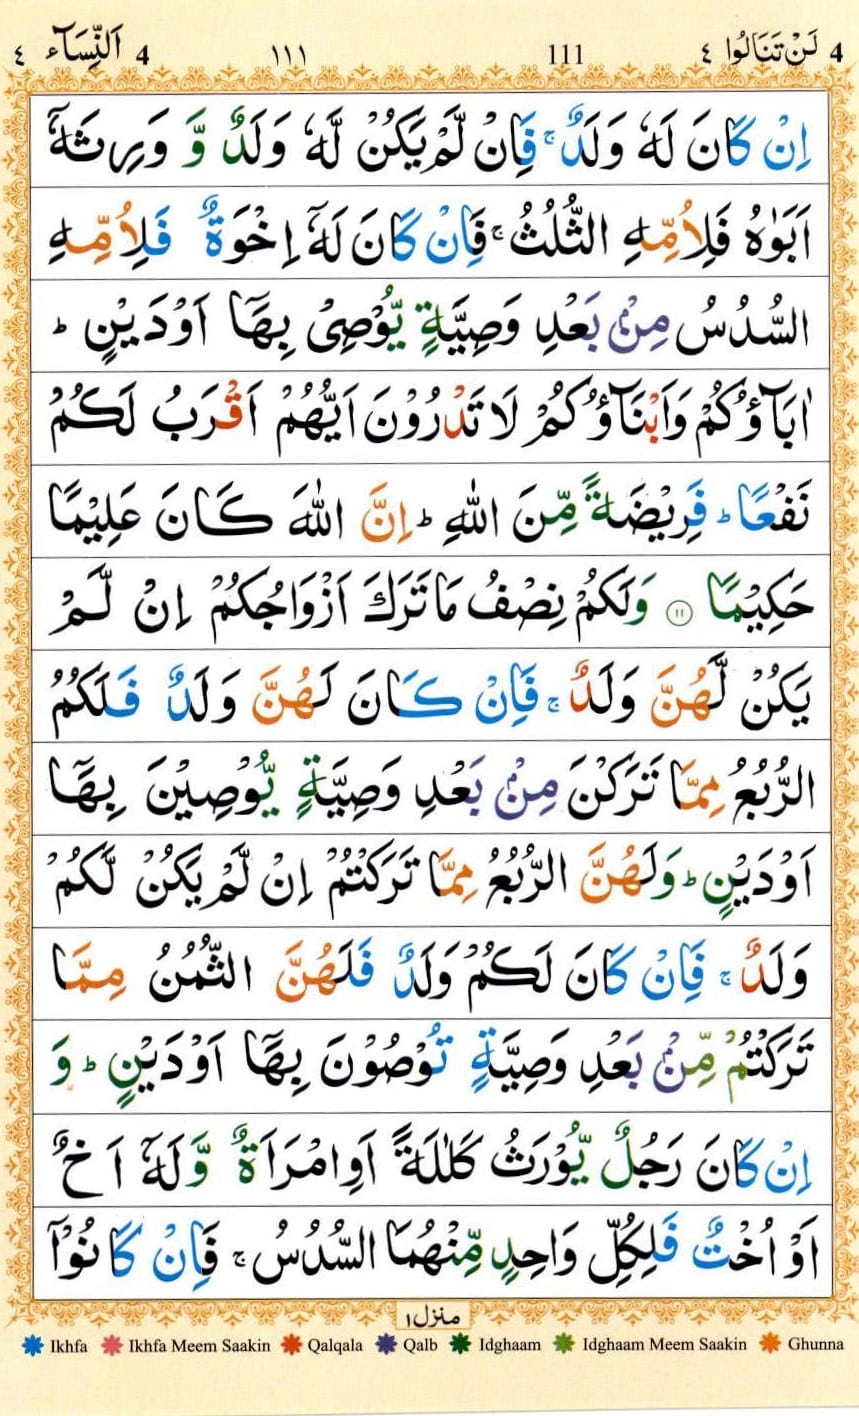 4 لَنْ تَنَالُوا ٤ 111 ١١١ 4 اَلنِّسَآء ٤
اِنْ كَانَ لَهٗ وَلَدٌ ۚ فَاِنْ لَّمْ يَكُنْ لَّهٗ وَلَدٌ وَّ وَرِثَهٗۤ
اَبَوٰهُ فَلِاُمِّهِ الثُّلُثُ ۚ فَاِنْ كَانَ لَهٗۤ اِخْوَةٌ فَلِاُمِّهِ
السُّدُسُ مِنْۢ بَعْدِ وَصِيَّةٍ يُّوْصِىْ بِهَاۤ اَوْ دَيْنٍ ؕ
اٰبَآؤُكُمْ وَاَبْنَآؤُكُمْ لَا تَدْرُوْنَ اَيُّهُمْ اَقْرَبُ لَكُمْ
نَفْعًا ؕ فَرِيْضَةً مِّنَ اللّٰهِ ؕ اِنَّ اللّٰهَ كَانَ عَلِيْمًا
حَكِيْمًا ۝۱۱ وَلَكُمْ نِصْفُ مَا تَرَكَ اَزْوَاجُكُمْ اِنْ لَّمْ
يَكُنْ لَّهُنَّ وَلَدٌ ۚ فَاِنْ كَانَ لَهُنَّ وَلَدٌ فَلَكُمُ
الرُّبُعُ مِمَّا تَرَكْنَ مِنْۢ بَعْدِ وَصِيَّةٍ يُّوْصِيْنَ بِهَاۤ
اَوْ دَيْنٍ ؕ وَلَهُنَّ الرُّبُعُ مِمَّا تَرَكْتُمْ اِنْ لَّمْ يَكُنْ لَّكُمْ
وَلَدٌ ۚ فَاِنْ كَانَ لَكُمْ وَلَدٌ فَلَهُنَّ الثُّمُنُ مِمَّا
تَرَكْتُمْ مِّنْۢ بَعْدِ وَصِيَّةٍ تُوْصُوْنَ بِهَاۤ اَوْ دَيْنٍ ؕ وَ
اِنْ كَانَ رَجُلٌ يُّوْرَثُ كَلٰلَةً اَوِ امْرَاَةٌ وَّلَهٗۤ اَخٌ
اَوْ اُخْتٌ فَلِكُلِّ وَاحِدٍ مِّنْهُمَا السُّدُسُ ۚ فَاِنْ كَانُوْۤا
منزل ۱
Ikhfa Ikhfa Meem Saakin Qalqala Qalb Idghaam Idghaam Meem Saakin Ghunna